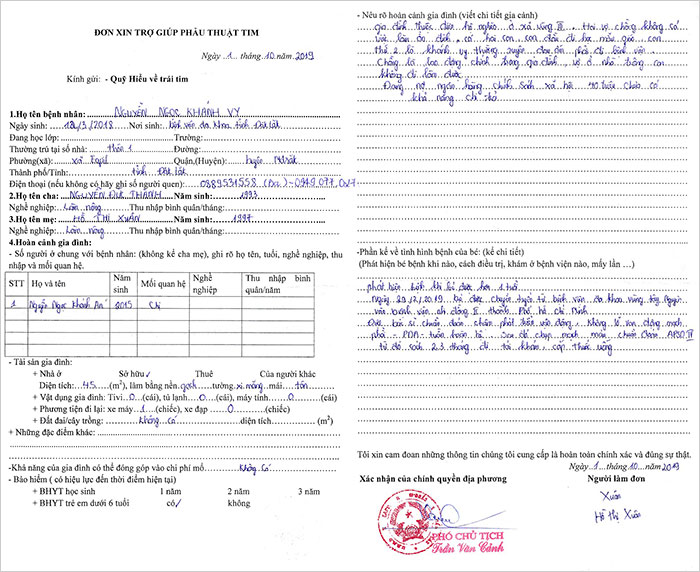 ĐƠN XIN TRỢ GIÚP PHẪU THUẬT TIM
Ngày 1 tháng 10 năm 2019
Kính gửi: - Quỹ Hiểu về trái tim
1.Họ tên bệnh nhân: NGUYỄN NGỌC KHÁNH VY
Ngày sinh: 12/3/2018 Nơi sinh: bệnh viện đa khoa tỉnh Đăk Lăk
Đang học lớp: Trường:
Thường trú tại số nhà: thôn 1 Đường:
Phường(xã): xã Eapil Quận,(Huyện) huyện Mđrăk
Thành phố/Tỉnh: tỉnh Đăk Lăk
Điện thoại (nếu không có hãy ghi số người quen):
2.Họ tên cha: NGUYỄN ĐỨC THÀNH Năm sinh: 1993
Nghề nghiệp: Làm nông Thu nhập bình quân/tháng:
3.Họ tên mẹ: HỒ THỊ XUÂN Năm sinh: 1997
Nghề nghiệp: Làm nông Thu nhập bình quân/tháng:
4.Hoàn cảnh gia đình:
- Số người ở chung với bệnh nhân: (không kể cha mẹ), ghi rõ họ tên, tuổi, nghề nghiệp, thu
nhập và mối quan hệ.
STT Họ và tên Năm sinh Mối quan hệ Nghề nghiệp Thu nhập bình quân/năm
1 Nguyễn Ngọc Khánh An 2015 Chị
- Tài sản gia đình:
+ Nhà ở Sở hữu ✓ Thuê Của người khác
Diện tích: 45 (m²), làm bằng nền gạch tường xi măng mái tôn
+ Vật dụng gia đình: Tivi 0 (cái), tủ lạnh 0 (cái), máy tính 0 (cái)
+ Phương tiện đi lại: xe máy 1 (chiếc), xe đạp 0 (chiếc)
+ Đất đai/cây trồng: không có diện tích (m²)
+ Những đặc điểm khác:
-Khả năng của gia đình có thể đóng góp vào chi phí mổ không có
- Bảo hiểm ( có hiệu lực đến thời điểm hiện tại)
+ BHYT học sinh 1 năm 2 năm 3 năm
+ BHYT trẻ em dưới 6 tuổi có ✓ không
- Nêu rõ hoàn cảnh gia đình (viết chi tiết gia cảnh)
gia đình thuộc diện hộ nghèo ở xã vùng III. Hai vợ chồng không có
việc làm ổn định, có hai con, con đầu đi học mẫu giáo, con
thứ 2 là khánh vy thường xuyên đau ốm phải đi bệnh viện.
Chồng là lao động chính trong gia đình, vợ ở nhà trông con
không đi làm được
Đang nợ ngân hàng chính sách xã hội 40 triệu chưa có
khả năng chi trả
-Phần kể về tình hình bệnh của bé: (kể chi tiết)
(Phát hiện bé bệnh khi nào, cách điều trị, khám ở bệnh viện nào, mấy lần …)
phát hiện bệnh khi bé được hơn 1 tuổi
Ngày 29/2/2019 bé được chuyển tuyến từ bệnh viện đa khoa vùng tây Nguyên
vào bệnh viện nhi đồng II thành phố hồ chí Minh
từ đó cách 2,3 tháng đi tái khám, cấp thuốc uống
Tôi xin cam đoan những thông tin chúng tôi cung cấp là hoàn toàn chính xác và đúng sự thật.
Ngày 1 tháng 10 năm 2019
Xác nhận của chính quyền địa phương Người làm đơn
Xuân
Hồ Thị Xuân
PHÓ CHỦ TỊCH
Trần Văn Cảnh